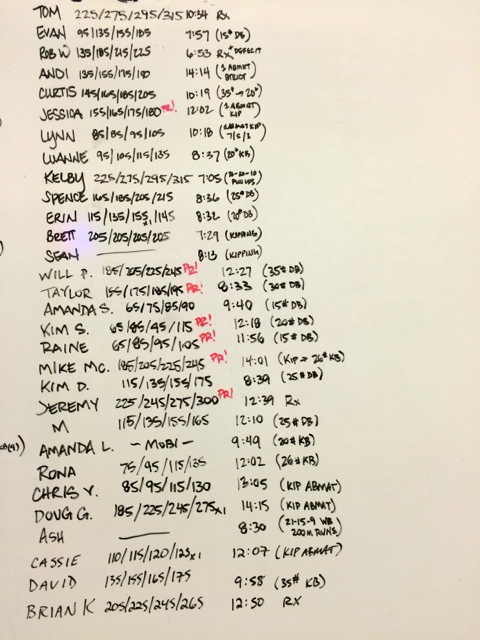 TOM 225/275/295/315 10:34 Rx
EVAN 95/135/155/185 7:57 (15# DB)
ROB W 135/185/215/225 6:53 Rx+DEFICIT
ANDI 135/155/175/190 14:14 (1 ABMAT STRICT)
CURTIS 145/165/185/205 10:19 (35# → 20#)
JESSICA 155/165/175/180 PR! 12:02 (1 ABMAT KIP)
LYNN 85/85/95/105 10:18 (ABMAT KIP 7/5/3)
LUANNE 95/105/115/135 8:37 (20# KB)
KELBY 225/275/295/315 7:05
SPENCE 165/185/205/215 8:36 (25# DB)
ERIN 115/135/155x1/145 8:32 (20# DB)
BRETT 205/205/205/205 7:29 (KIPPING)
SEAN 8:13 (KIPPING)
WILL P. 185/205/225/245 PR! 12:27 (35# DB)
TAYLOR 155/175/185/195 PR! 8:33 (30# DB)
AMANDA S. 65/75/85/90 9:40 (15# DB)
KIM S. 65/85/95/115 PR! 12:18 (20# DB)
RAINE 65/85/95/105 PR! 11:56 (15# DB)
MIKE MC. 185/205/225/245 PR! 14:01 (KIP → 26# KB)
KIM D. 115/135/155/175 8:39 (25# DB)
JEREMY 225/245/275/300 PR! 12:39 Rx
M 115/135/155/165 12:10 (25# DB)
AMANDA L. - MOBI - 9:49 (20# KB)
RONA 75/95/115/135 12:02 (26# KB)
CHRIS Y. 85/95/115/130 13:05 (KIP ABMAT)
DOUG G. 185/225/245/275x1 14:15 (KIP ABMAT)
ASH 8:30 (21-15-9 WB 200M RUNS)
CASSIE 110/115/120/125x1 12:07 (KIP ABMAT)
DAVID 135/155/165/175 9:58 (35# KB)
BRIAN K 205/225/245/265 12:50 RX